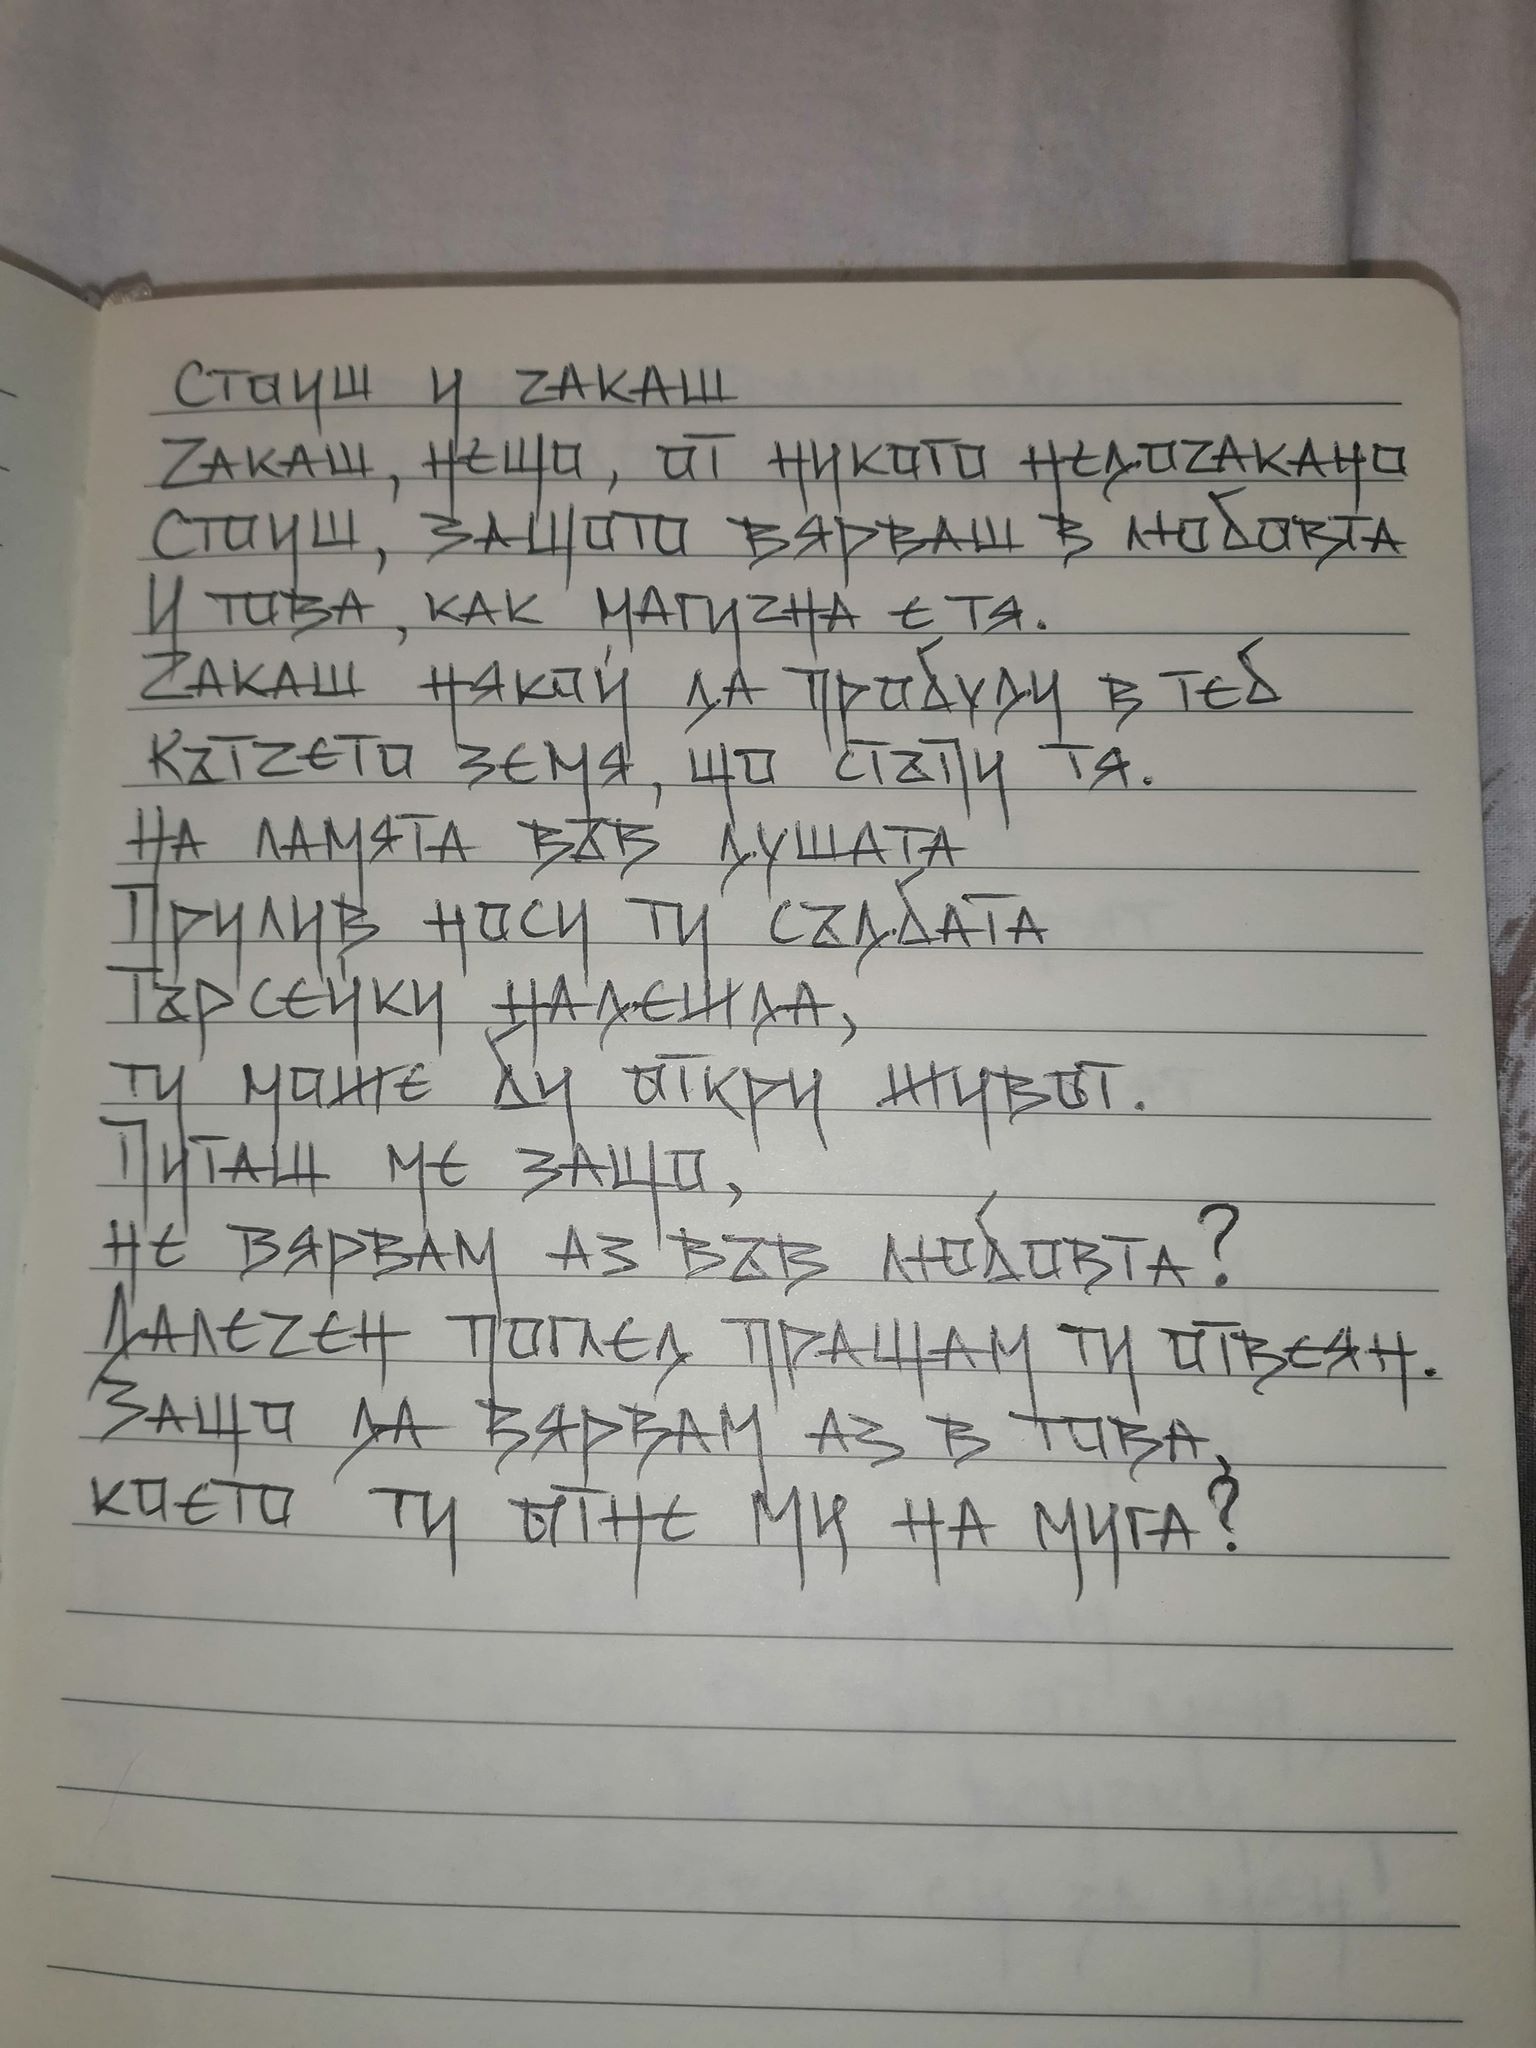 Стоиш и чакаш
Чакаш, нещо, от никого недочакано
Стоиш, защото вярваш в любовта
И това, как магична е тя.
Чакаш някой да пробуди в теб
късчето земя, що стъпи тя.
На ламята във душата
Прилив носи ти съдбата
Търсейки надежда,
ти може би откри живот.
Питаш ме защо,
не вярвам аз във любовта?
Далечен поглед пращам ти отвеян.
Защо да вярвам аз в това,
което ти отне ми на мига?